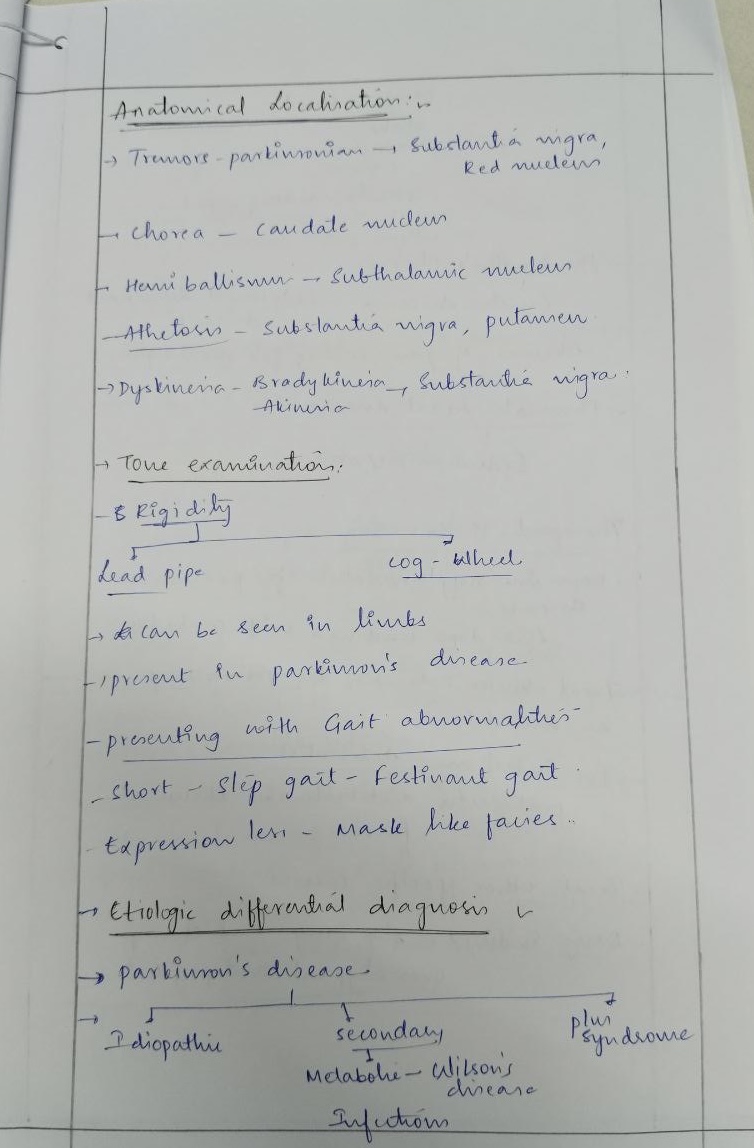 Anatomical Localisation:-
→ Tremors - parkinsonian → Substantia nigra,
Red nucleus
→ Chorea - caudate nucleus
→ Hemi ballismus → Subthalamic nucleus
- Athetosis - Substantia nigra, putamen
→ Dyskinesia - Bradykinesia → Substantia nigra.
- Akinesia
→ Tone examination:
- Rigidity
Lead pipe cog-wheel
→ can be seen in limbs
→ present in parkinson's disease
- presenting with Gait abnormalities
- Short - Step gait - Festinant gait.
- Expression less - Mask like facies..
→ Etiologic differential diagnosis
→ parkinson's disease.
→ Idiopathic secondary plus syndrome
Metabolic - Wilson's
disease
Infections